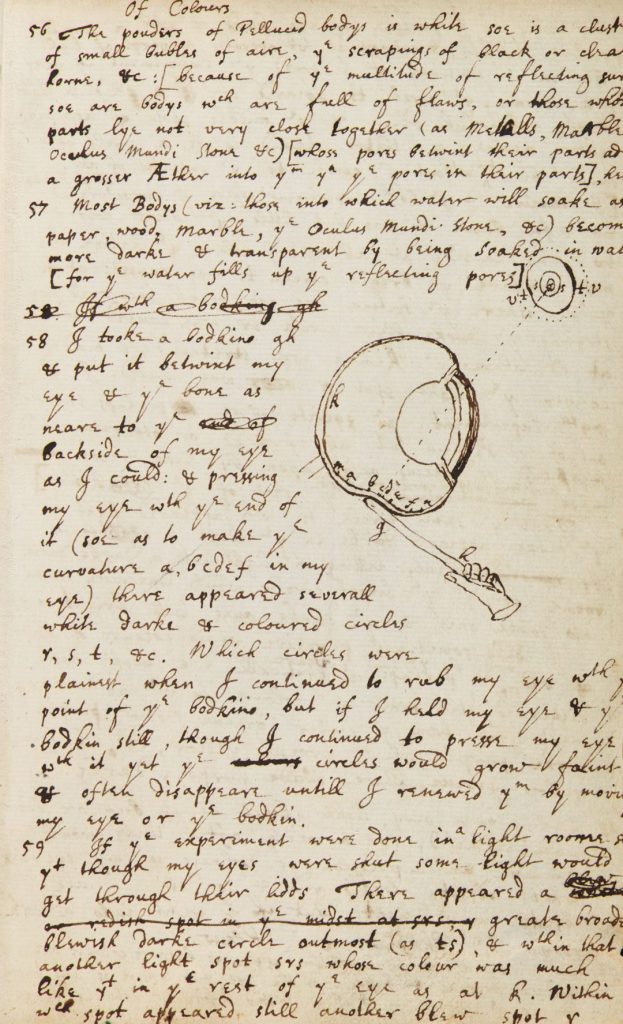 Of Colours
56 The pouders of Pellucid bodys is white soe is a clust
of small bubles of aire, yᵉ scrapings of black or clea
horne, &c: [because of yᵉ multitude of reflecting sur
soe are bodys wᶜʰ are full of flaws, or those whos
parts lye not very close together (as Metalls, Marble
Oculus Mundi Stone &c) [whose pores betwixt their parts ad
a grosser Æther into yᵐ yⁿ yᵉ pores in their parts], he
57 Most Bodys (viz: those into which water will soake as
paper, wood, Marble, yᵉ Oculus Mundi Stone, &c) becom
more darke & transparent by being soaked in wat
[for yᵉ water fills up yᵉ reflecting pores]
58 If wᵗʰ a bodkine gh
58 I tooke a bodkine gh
& put it betwixt my
eye & yᵉ bone as
neare to yᵉ end of
backside of my eye
as I could: & pressing
my eye wᵗʰ yᵉ end of
it (soe as to make yᵉ
curvature a, bcdef in my
eye) there appeared severall
white darke & coloured circles
r, s, t, &c. Which circles were
plainest when I continued to rub my eye wᵗʰ yᵉ
point of yᵉ bodkine, but if I held my eye & yᵉ
bodkin still, though I continued to presse my eye
wᵗʰ it yet yᵉ colours circles would grow faint
& often disappeare untill I renewed yᵐ by movi
my eye or yᵉ bodkin.
59 If yᵉ experiment were done in a light roome s
yᵗ though my eyes were shut some light would
get through their lidds There appeared a
or redish spot in yᵉ midst at srs, greate broade
blewish darke circle outmost (as ts), & wᵗʰin that
another light spot srs whose colour was much
like yᵗ in yᵉ rest of yᵉ eye as at k. Within
wᶜʰ spot appeared still another blew spot r
v t s s t v
k
m a b c d e f n
g
h